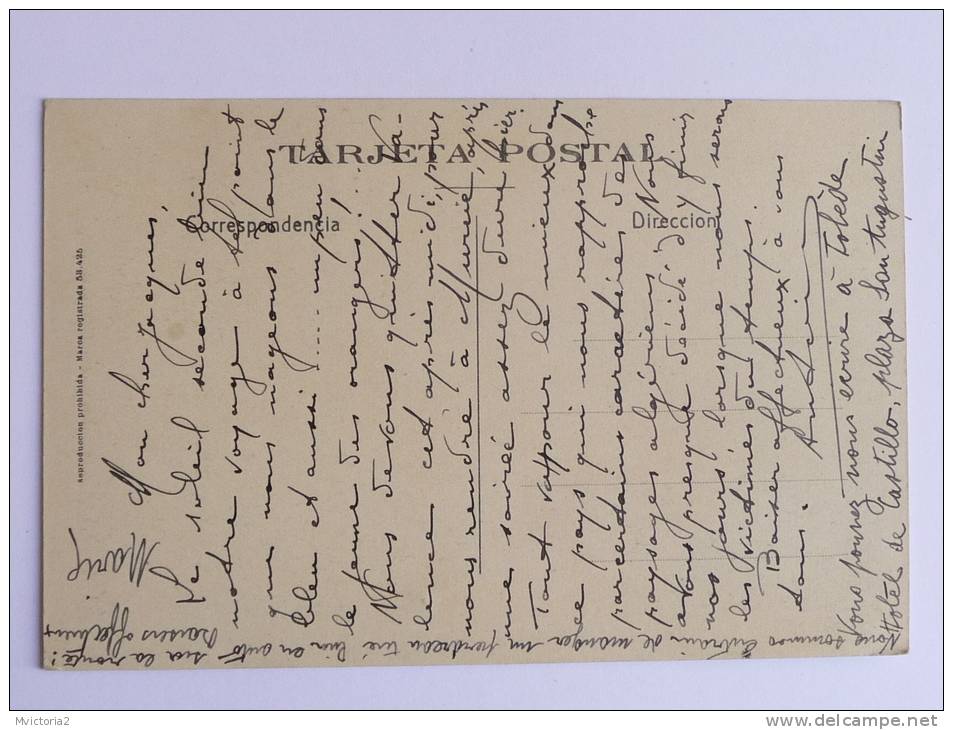 TARJETA POSTAL
Correspondencia
Direccion
Reproduccion prohibida - Marca registrada 53.425
Mon cher Jacques,
Le soleil seconde bien
notre voyage à tel point
que nous nageons dans le
bleu et aussi .... un peu dans
le jaune des oranges!...
Nous devons quitter Va-
lence cet après midi, pour
nous rendre à Murcie, après
une soirée assez dure hier.
Tout va pour le mieux dans
ce pays qui nous rapproche
par certains caractères des
paysages algériens. Nous
avons presque décidé d'y finir
nos jours lorsque nous serons
les victimes du temps.
Baiser affectueux à vous
tous.
Vous pouvez nous écrire à Tolède
Hotel de Castillo, plaza San Augustin
Nous sommes entrain de manger un perdreau tiré hier en auto
sur la route! Baisers affectueux
Marie
Mvictoria2
www.delcampe.net